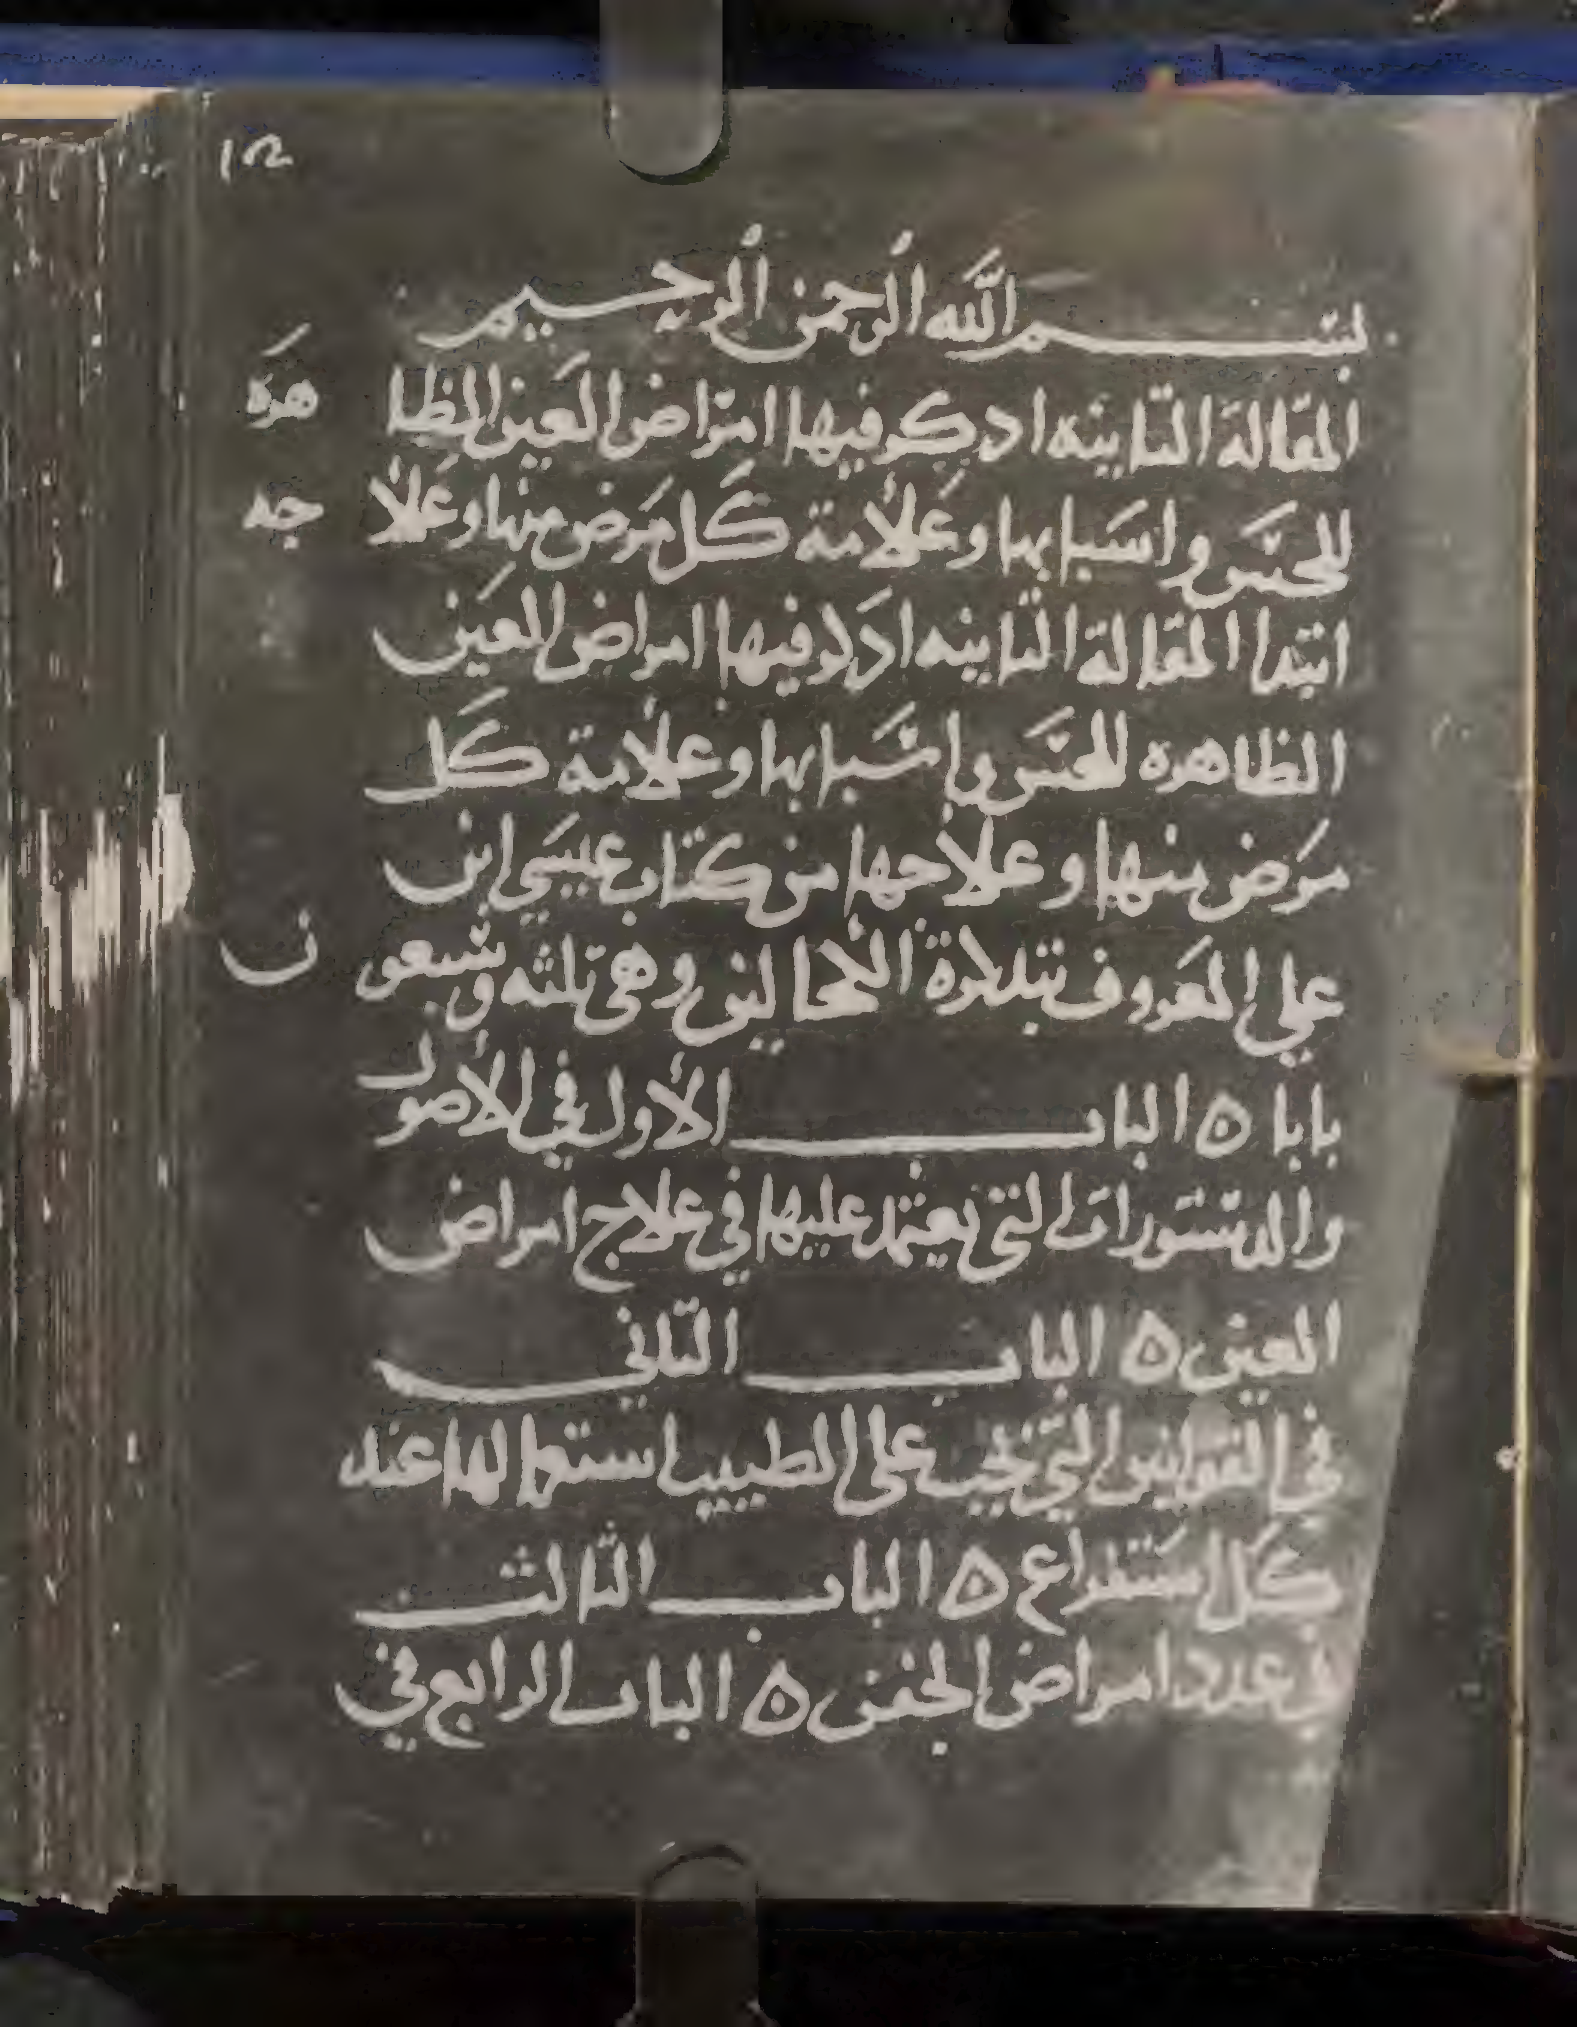 ١٣
بسم الله الرحمن الرحيم
المقالة التانيه ادكر فيها امراض العين الظاهره
للحس واسبابها وعلامة كل مرض منها وعلاجه
ابتدا المقالة التانيه ادكر فيها امراض العين
الظاهره للحس واسبابها وعلامة كل
مرض منها وعلاجها من كتاب عيسي ابن
علي المعروف بتدكرة الكحالين وهي تلثه وسبعون
بابا ه الباب الأول في الأصول
والدستورات التي يعتمد عليها في علاج امراض
العين ه الباب التاني
في القوانين التي يجب علي الطبيب استعمالها عند
كل استفراغ ه الباب الثالث
في عدد امراض الجفن ه الباب الرابع في